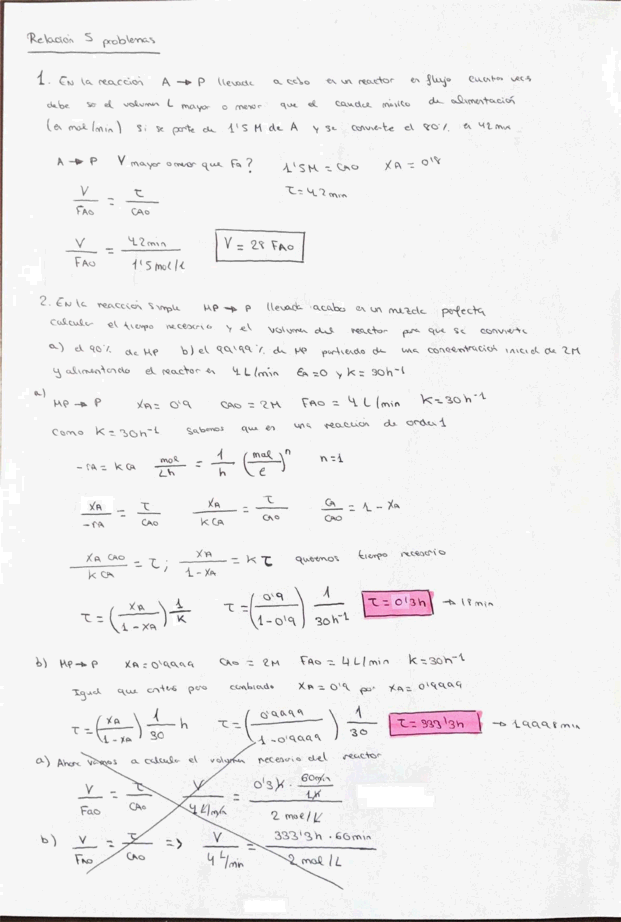 Relación 5 problemas
1. En la reacción A → P llevada a cabo en un reactor en flujo cuantas veces
debe ser el volumen L mayor o menor que el caudal másico de alimentación
(en mol/min) Si se parte de 1'5 M de A y se convierte el 80% en 42 min
A → P V mayor o menor que Fa? 1'5M = CAO XA = 0'8
τ = 42 min
V/FAO = τ/CAO
V/FAO = 42min/1'5 mol/l V = 28 FAO
2. En la reacción simple MP → P llevada acabo en un mezcla perfecta
calcular el tiempo necesario y el volumen del reactor para que se convierta
a) el 90% de MP b) el 99'99% de MP partiendo de una concentración inicial de 2M
y alimentando el reactor en 4 L/min εA = 0 y K = 30h⁻¹
a)
MP → P XA = 0'9 CAO = 2M FAO = 4 L/min K = 30h⁻¹
Como K = 30h⁻¹ Sabemos que es una reacción de orden 1
-rA = K CA mol/Lh = 1/h (mol/l)ⁿ n = 1
XA/-rA = τ/CAO XA/K CA = τ/CAO CA/CAO = 1 - XA
XA CAO/K CA = τ; XA/1-XA = K τ queremos tiempo necesario
τ = (XA/1-XA) 1/K τ = (0'9/1-0'9) 1/30h⁻¹ τ = 0'3h → 18 min
b) MP → P XA = 0'9999 CAO = 2M FAO = 4 L/min K = 30h⁻¹
Igual que antes pero cambiado XA = 0'9 por XA = 0'9999
τ = (XA/1-XA) 1/30 h τ = (0'9999/1-0'9999) 1/30 τ = 333'3h → 19998 min
a) Ahora vamos a calcular el volumen necesario del reactor
V/FAO = τ/CAO V/4 L/min = 0'3h · 60min/1h / 2 mol/L
b) V/FAO = τ/CAO => V/4 L/min = 333'3h · 60min / 2 mol/L